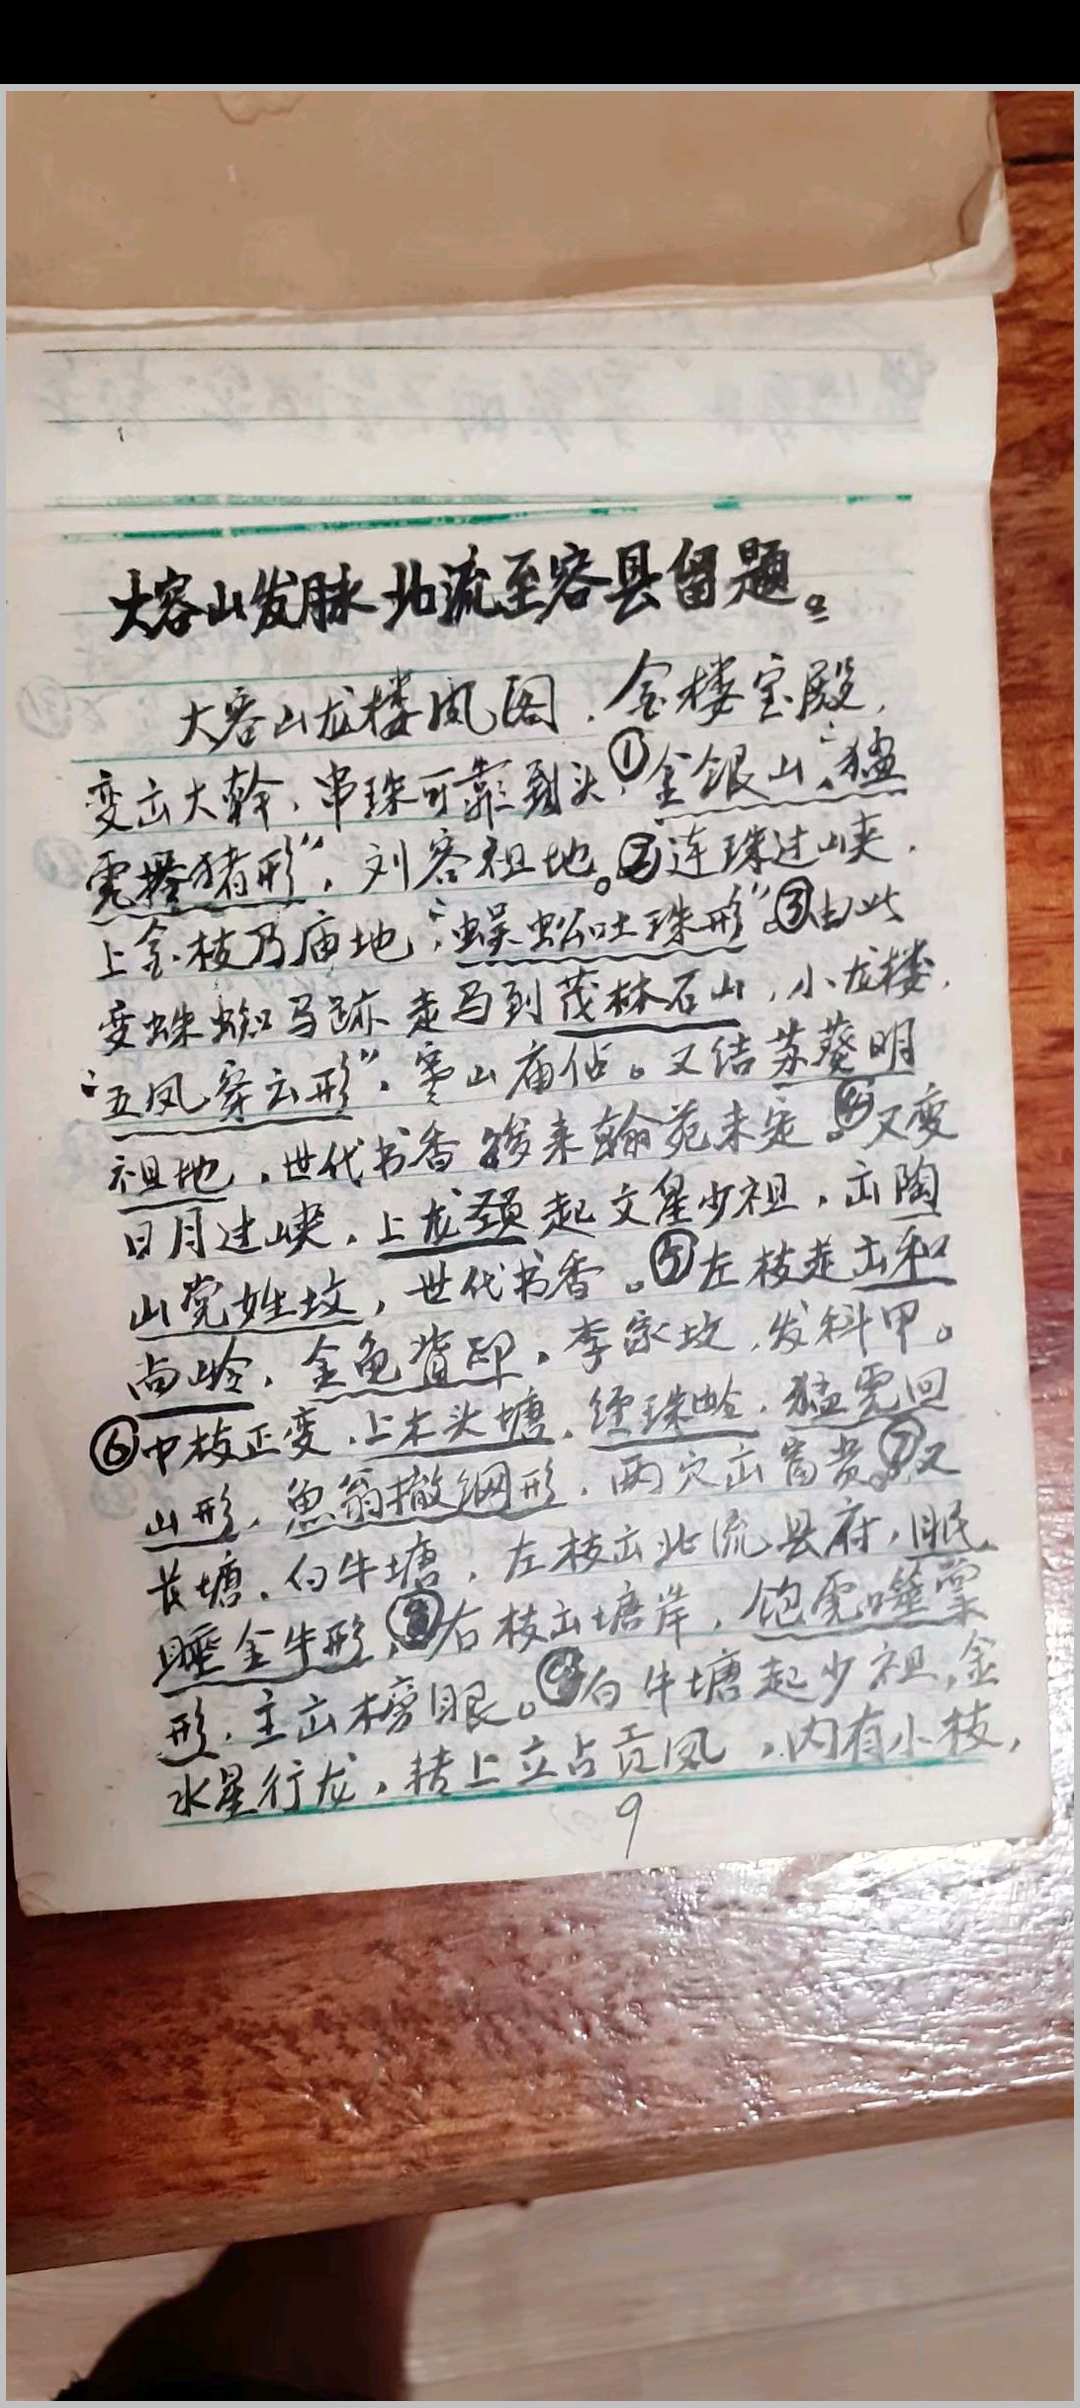 大容山发脉北流至容县留题。
大容山龙楼凤阁，金楼宝殿，
变出大幹，串珠可靠到头，①金银山，“猛
虎撵猪形”，刘容祖地。②连珠过峡，
上金枝乃庙地，“蜈蚣吐珠形”。③由此
变蛛蜘马跡走马到茂林石山，小龙楼，
“五凤穿云形”，寒山庙佔。又结苏葵明
祖地，世代书香，后来翰苑未定。④又变
日月过峡，上龙颈起文星少祖，出陶
山党姓坟，世代书香。⑤左枝走出和
尚岭，金龟背印，李家坟，发科甲。
⑥中枝正变，上木头塘，缠珠岭，猛虎回
山形，魚翁撒網形，两穴出富贵。⑦又
长塘，白牛塘，左枝出北流县府，眠
睡金牛形，⑧右枝出塘岸，饱虎噬棠
形，主出榜眼。⑨白牛塘起少祖，金
水星行龙，转上立占贡凤，内有小枝，
9